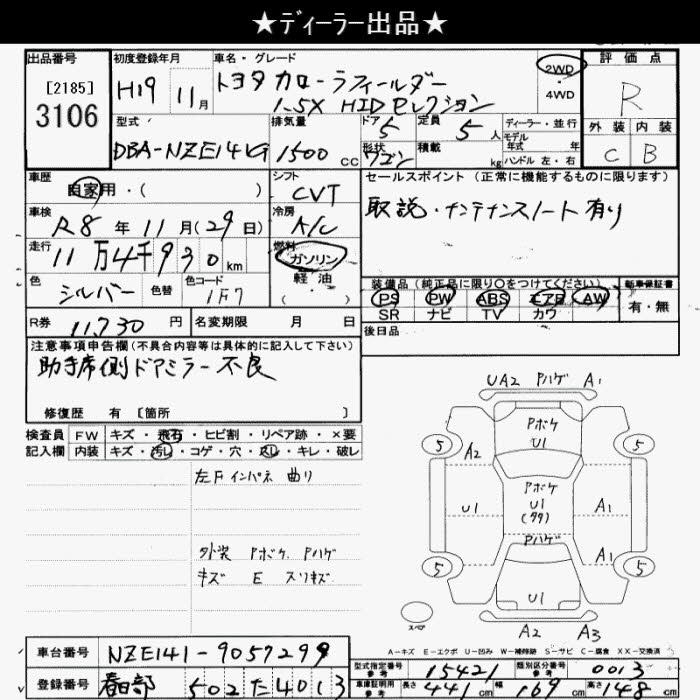 ★ディーラー出品★
出品番号
[2185]
3106
初度登録年月
H19 11月
車名・グレード
トヨタカローラフィールダー
1.5X HIDセレクション
2WD
4WD
評価点
R
外装 内装
C B
型式
DBA-NZE141G
排気量
1500 cc
ドア 5
形状 ワゴン
定員 5人
積載 kg
ディーラー・並行
モデル
年式 年
ハンドル 左・右
車歴
自家用・( )
シフト
CVT
セールスポイント (正常に機能するものに限ります)
取説・メンテナンスノート有り
車検
R8年11月(29日)
冷房
A/C
走行
11万4千930km
燃料
ガソリン
軽油
( )
色
シルバー
色替
色コード
1F7
装備品(純正品に限り○をつけてください)
PS PW ABS エアB AW
SR ナビ TV カワ
新車保証書
有・無
後日品
R券 11,730円
名変期限 月 日
注意事項申告欄(不具合内容等は具体的に記入して下さい)
助手席側ドアミラー不良
修復歴 有 [箇所 ]
検査員
記入欄
FW キズ・飛石・ヒビ割・リペア跡・×要
内装 キズ・汚れ・コゲ・穴・・キレ・破レ
左Fインパネ 曲り
外装 Pボケ Pハゲ
キズ E スリキズ
UA2 Pハゲ A1
Pボケ
U1
5 5
A2
U1
Pボケ
U1
(タタ)
A1
Pハゲ
A1
5 5
U1
スペア
A2 A3
A-キズ E-エクボ U-凹み W-補修跡 S-サビ C-腐食 XX-交換済
車台番号
NZE141-9057299
登録番号
春日部 502 た 4013
型式指定番号
参考
15421
類別区分番号
参考
0013
車庫証明用
参考
長さ 441cm 幅 169cm 高さ 148cm